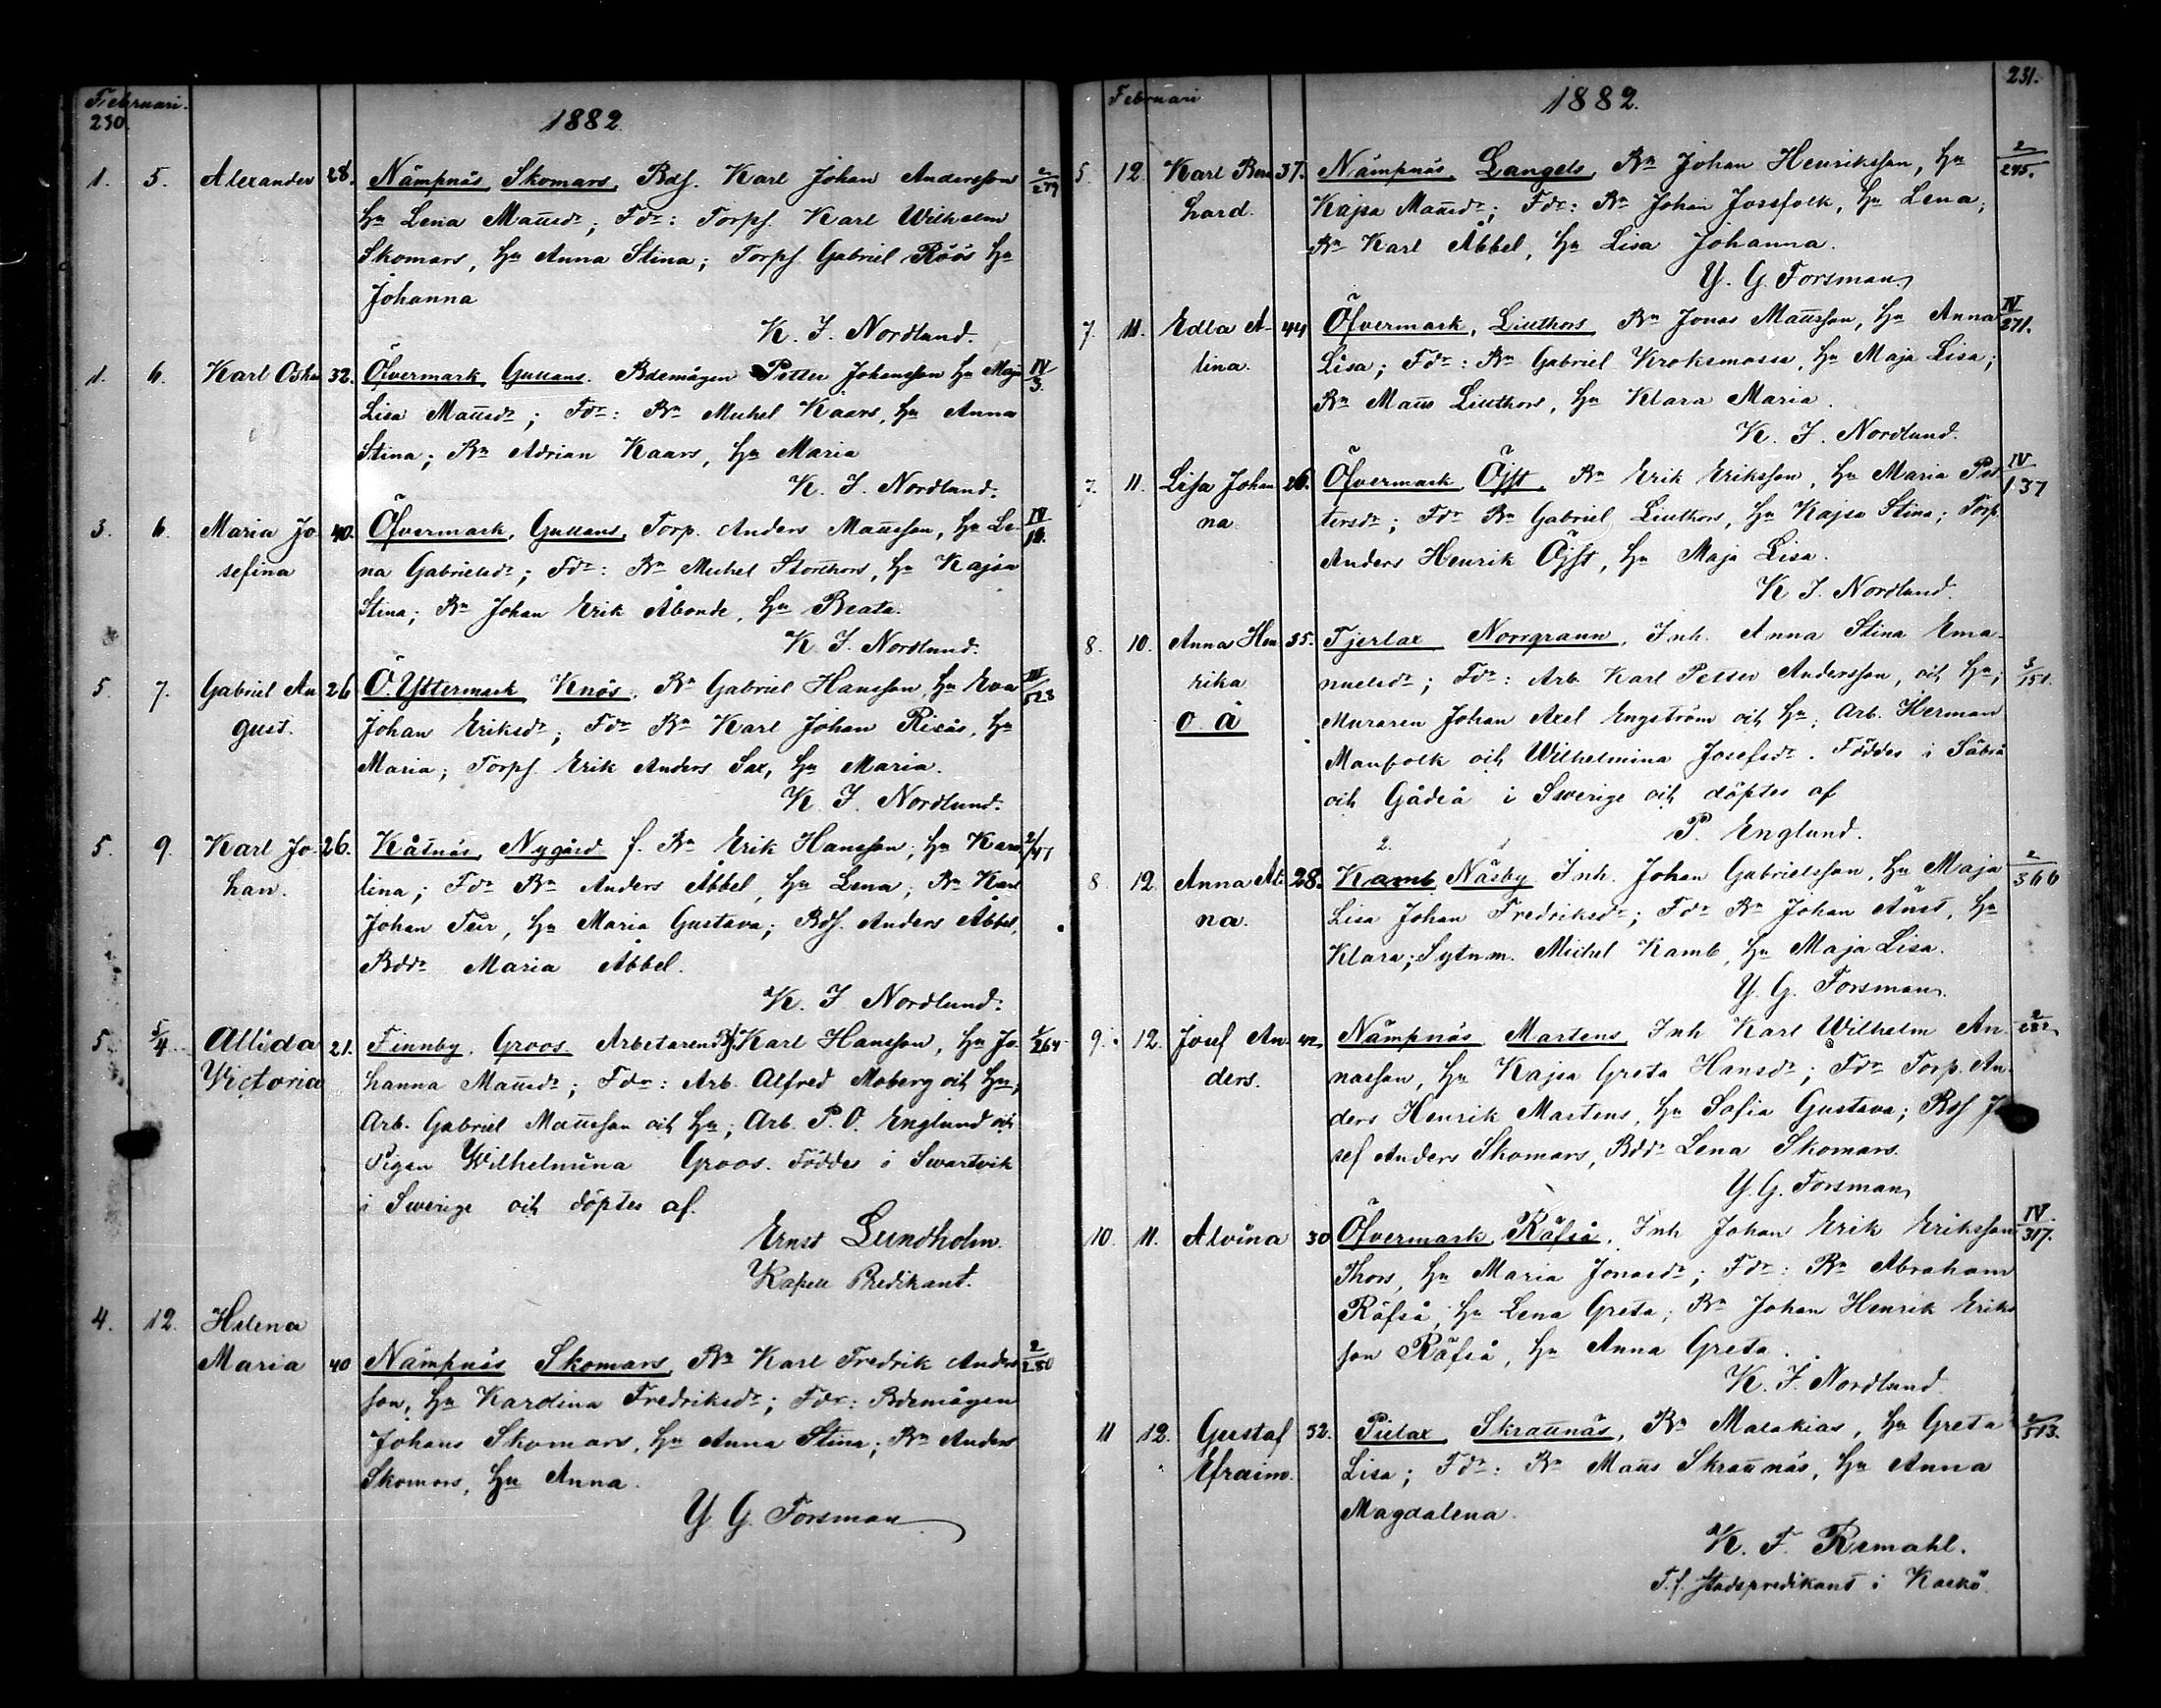 Februari.
230.
1882
1. 5. Alexander 28. Nämpnäs Skomars, Bdſ. Karl Johan Andersson 2/279
Hu Lena Mattsdr; Fdr: Torpſ. Karl Wilhelm
Skomars, Hu Anna Stina; Torpſ Gabriel Röös Hu
Johanna
K. J. Nordlund.
1. 6. Karl Oskar 32. Öfvermark Gullans. Bdemågen Petter Johansson Hu Maja IV/3.
Lisa Mattsdr; Fdr: Bn Michel Kaars, Hu Anna
Stina; Bn Adrian Kaars, Hu Maria
K. J. Nordlund.
3. 6. Maria Jo- 40. Öfvermark, Gullans, Torp. Anders Mattsson, Hu Le- IV/
sefina na Gabrielsdr; Fdr: Bn Michel Storthors, Hu Kajsa
Stina; Bn Johan Erik Åbonde, Hu Beata.
K. J. Nordlund.
5. 7. Gabriel Au 26 Ö. Yttermark Knös. Bn Gabriel Hansson, Hu Eva IV/523
gust. Johan Eriksdr; Fdr Bn Karl Johan Risås, Hu
Maria; Torpſ. Erik Anders Sax, Hu Maria.
K. J. Nordlund.
5. 9. Karl Jo- 26. Kåtnäs, Nygård f. Bn Erik Hansson, Hu Karo 2/47
han. lina; Fdr Bn Anders Åbbel, Hu Lena; Bn Karl
Johan Teir, Hu Maria Gustava; Bdſ. Anders Åbbel,
Bddr Maria Åbbel.
K. J. Nordlund.
5 5/4 Allida 21. Finnby, Groos Arbetaren Bdſ. Karl Hansson, Hu Jo- 1/264
Victoria hanna Mattsdr; Fdr: Arb. Alfred Moberg och Hu;
Arb. Gabriel Mattsson och Hu; Arb. P. O. Englund och
Pigan Wilhelmina Groos. Föddes i Swartvik
i Swerige och döptes af.
Ernst Lundholm.
Kapell Predikant.
4. 12. Helena
Maria 40 Nämpnäs Skomars, Bn Karl Fredrik Anders 2/280
son, Hu Karolina Fredriksdr; Fdr: Bdemågen
Johans Skomars, Hu Anna Stina; Bn Anders
Skomars, Hu Anna.
Y. G. Forsman
Februari
1882.
231.
5. 12. Karl Bern 37. Nämpnäs, Langels, Bn Johan Henriksson, Hu 2/295.
hard. Kajsa Mattsdr; Fdr: Bn Johan Jossfolk, Hu Lena;
Bn Karl Åbbel, Hu Lisa Johanna.
Y. G. Forsman
7. 11. Edla A- 44 Öfvermark, Lillthors Bn Jonas Mattsson, Hu Anna IV/271.
lina. Lisa; Fdr: Bn Gabriel Kroksmossa, Hu Maja Lisa;
Bn Matts Lillthors, Hu Klara Maria.
K. J. Nordlund.
7. 11. Lisa Johan 26. Öfvermark, Öjst, Bn Erik Eriksson, Hu Maria Pet IV/137
na. tersdr; Fdr Bn Gabriel Lillthors, Hu Kajsa Stina; Torp.
Anders Henrik Öjst, Hu Maja Lisa.
K J. Nordlund.
8. 10. Anna Hen 35. Tjerlax Norrgrann, Inh. Anna Stina Ema-
rika nuelsdr; Fdr: Arb. Karl Petter Andersson, och Hu; 3/151.
o. ä Muraren Johan Axel Engström och Hu; Arb. Herman
Manfolk och Wilhelmina Josefsdr. Föddes i Säbrå
och Gådeå i Swerige och döptes af
P. Englund.
8. 12. Anna Al- 28. Kamb Näsby Inh. Johan Gabrielsson, Hu Maja 2/366
na. Lisa Johan Fredriksdr; Fdr Bn Johan Åust, Hu
Klara; Sytn.m. Michel Kamb, Hu Maja Lisa.
Y. G. Forsman.
9. 12. Josef An- 42 Nämpnäs Martens, Inh Karl Wilhelm An- 2/282
ders. nasson, Hu Kajsa Greta Hansdr; Fdr Torp. An-
ders Henrik Martens, Hu Sofia Gustava; Bdſ Jo
sef Anders Skomars, Bddr Lena Skomars.
Y. G. Forsman
10. 11. Alvina 30 Öfvermark, Räfså, Inh Johan Erik Eriksson IV/317.
Thors, Hu Maria Jonasdr; Fdr: Bn Abraham
Räfså, Hu Lena Greta; Bn Johan Henrik Eriks
son Räfså, Hu Anna Greta.
K. J. Nordlund
11 12. Gustaf 32. Pielax, Skrattnäs, Bn Malakias, Hu Greta 2/313.
Efraim. Lisa; Fdr: Bn Matts Skrattnäs, Hu Anna
Magdalena.
K. F. Remahl.
T.f. stadspredikant i Kaskö.